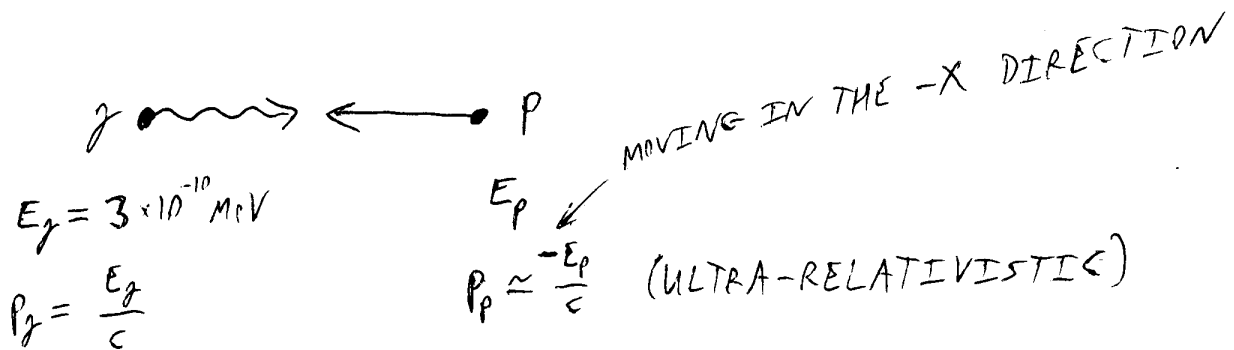 γ P
MOVING IN THE -X DIRECTION
E_γ = 3 × 10^-10 MeV E_p
P_γ = E_γ/c P_p ≃ -E_p/c (ULTRA-RELATIVISTIC)